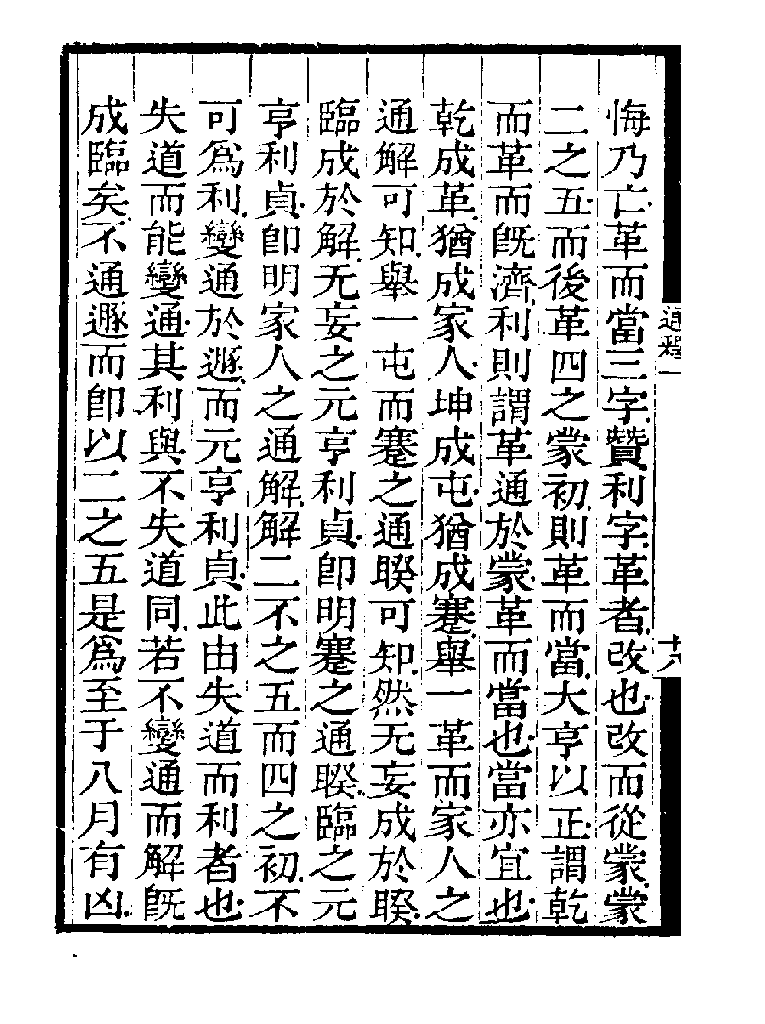 悔乃亡革而當三字贊利字革者改也改而從蒙蒙
二之五而後革四之蒙初則革而當大亨以正謂乾
而革而旣濟利則謂革通於蒙革而當也當亦宜也
乾成革猶成家人坤成屯猶成蹇舉一革而家人之
通解可知舉一屯而蹇之通睽可知然无妄成於睽
臨成於解无妄之元亨利貞卽明蹇之通睽臨之元
亨利貞卽明家人之通解解二不之五而四之初不
可爲利變通於遯而元亨利貞此由失道而利者也
失道而能變通其利與不失道同若不變通而解旣
成臨矣不通遯而卽以二之五是爲至于八月有凶
通釋一
十八